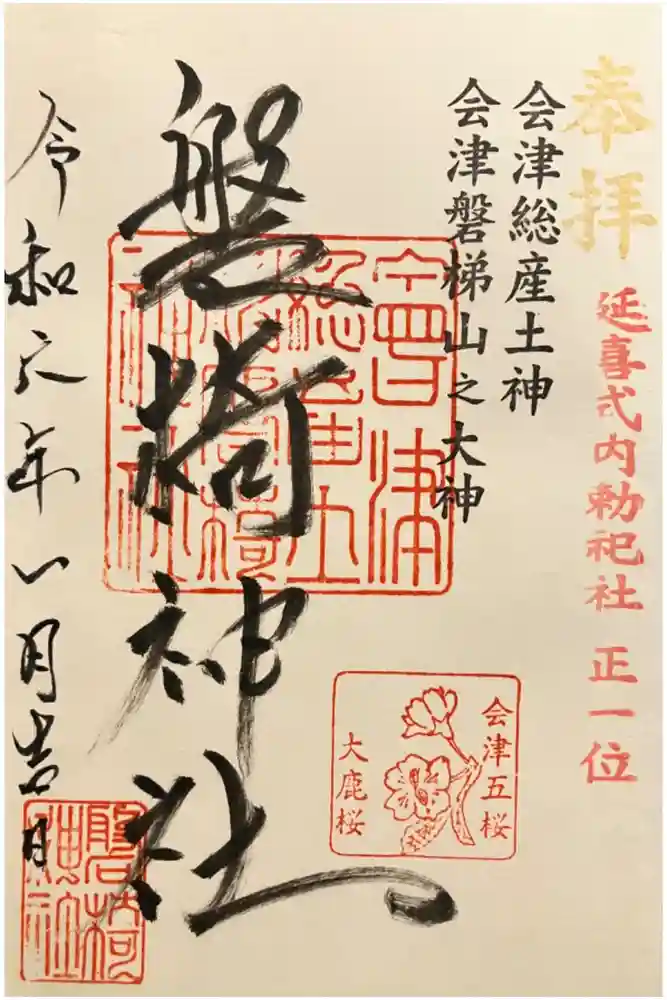 奉拝
延喜式内勅祀社 正一位
会津総産土神
会津磐梯山之大神
會津
磐椅神社
会津五桜
大鹿桜
令和元年八月吉日
磐椅
神社